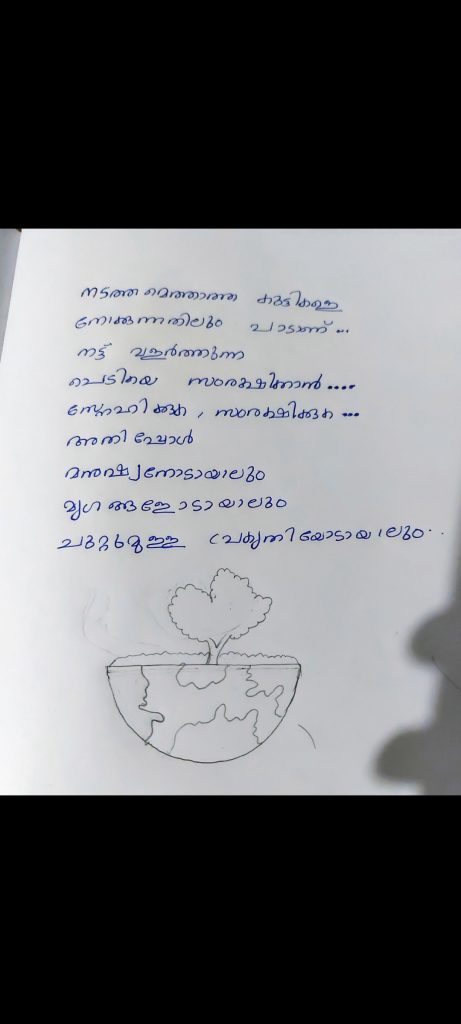 നടത്ത മെത്താത്ത കുട്ടികളെ
നോക്കുന്നതിലും പാടാണ്...
നട്ട് വളർത്തുന്ന
ചെടിയെ സംരക്ഷിക്കാൻ....
സ്നേഹിക്കുക, സംരക്ഷിക്കുക...
അതിപ്പോൾ
മനുഷ്യനോടായാലും
മൃഗങ്ങളോടായാലും
ചുറ്റുമുള്ള പ്രകൃതിയോടായാലും..